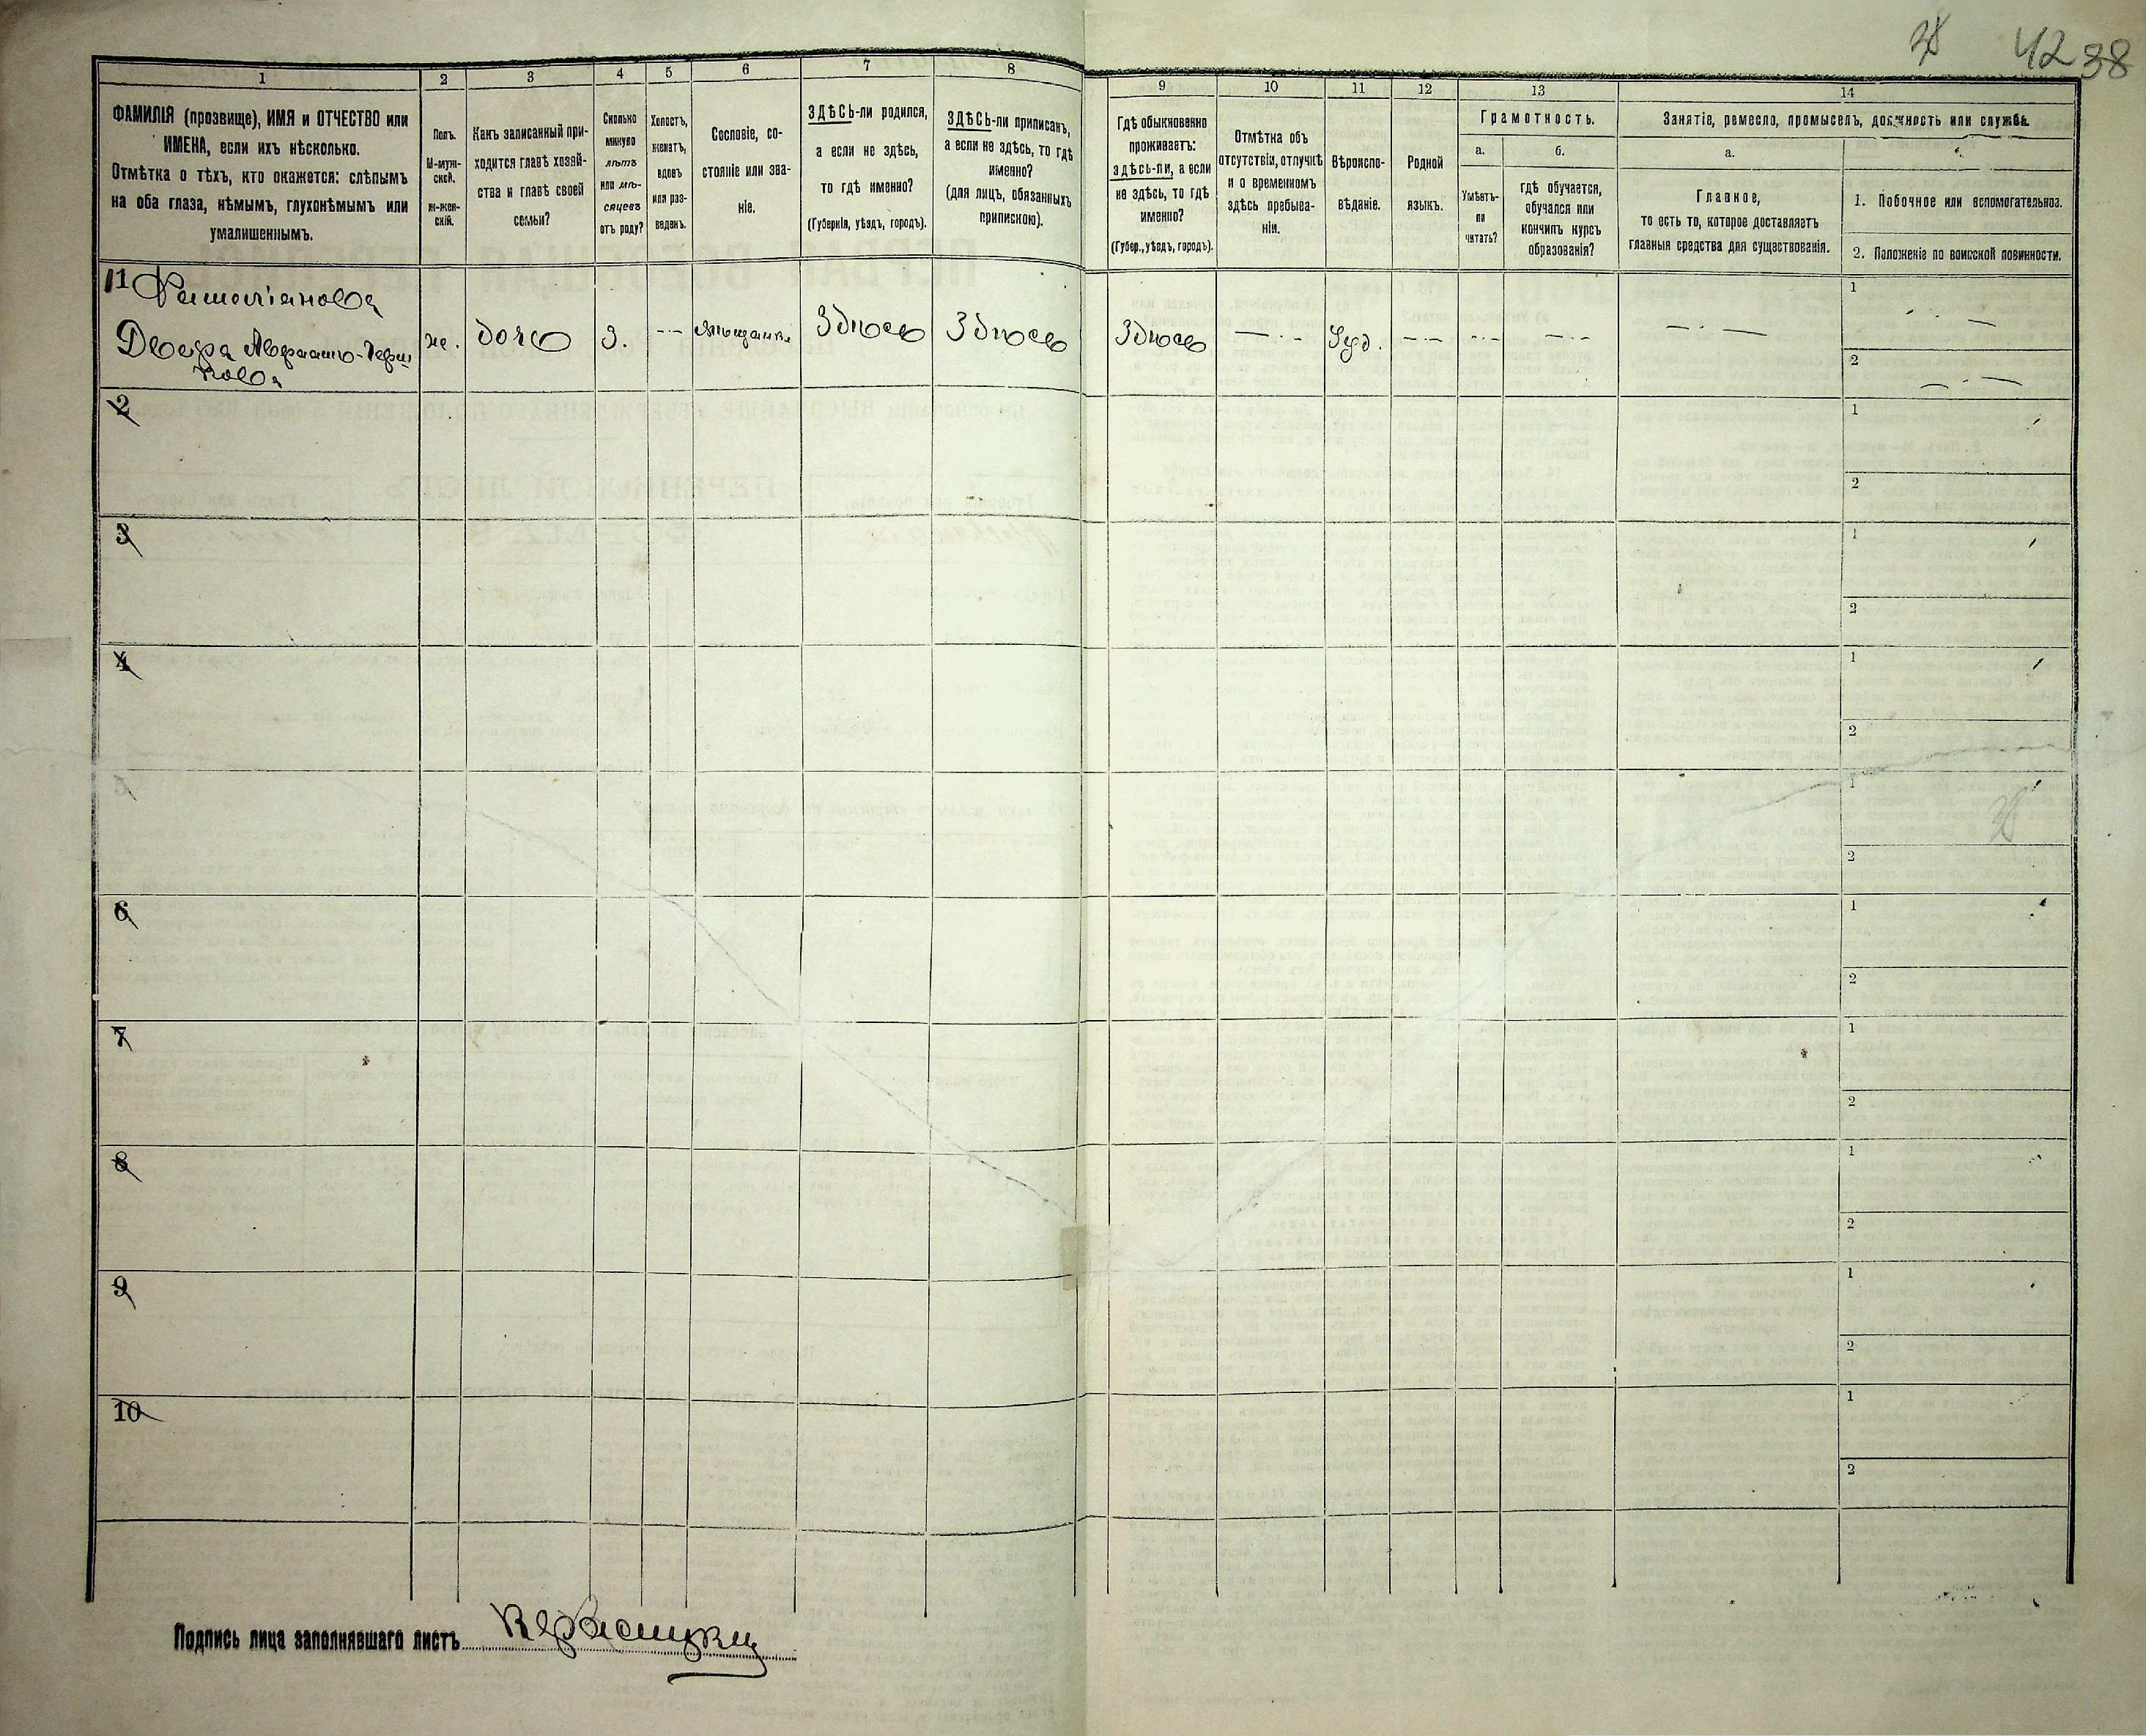 42 38
1 2 3 4 5 6 7 8 9 10 11 12 13 14
ФАМИЛІЯ (прозвище), ИМЯ и ОТЧЕСТВО или
ИМЕНА, если ихъ нѣсколько.
Отмѣтка о тѣхъ, кто окажется: слѣпымъ
на оба глаза, нѣмымъ, глухонѣмымъ или
умалишеннымъ.
Полъ.
М-муж-
ской.
ж-жен-
скій.
Какъ записанный при-
ходится главѣ хозяй-
ства и главѣ своей
семьи?
Сколько
минуло
лѣтъ
или мѣ-
сяцевъ
отъ роду?
Холостъ,
женатъ,
вдовъ
или раз-
веденъ.
Сословіе, со-
стояніе или зва-
ніе.
ЗДѢСЬ-ли родился,
а если не здѣсь,
то гдѣ именно?
(Губернія, уѣздъ, городъ).
ЗДѢСЬ-ли приписанъ,
а если не здѣсь, то гдѣ
именно?
(для лицъ, обязанныхъ
припискою).
Гдѣ обыкновенно
проживаетъ:
здѣсь-ли, а если
не здѣсь, то гдѣ
именно?
(Губер., уѣздъ, городъ).
Отмѣтка объ
отсутствіи, отлучкѣ
и о временномъ
здѣсь пребыва-
ніи.
Вѣроиспо-
вѣданіе.
Родной
языкъ.
Грамотность.
а.
Умѣетъ-
ли
читать?
б.
гдѣ обучается,
обучался или
кончилъ курсъ
образованія?
Занятіе, ремесло, промыселъ, должность или служба.
а.
Главное,
то есть то, которое доставляетъ
главныя средства для существованія.
1. Побочное или вспомогательное.
2. Положеніе по воинской повинности.
11
Двера
ж. дочь 3. -·- мѣщанка Здѣсь Здѣсь Здѣсь —·- Іуд. -·- -·- —·- —·— 1 -·—
2 —·—
2 1
2
3 1
2
4 1
2
5 1
2
6 1
2
7 1
2
8 1
2
9 1
2
10 1
2
Подпись лица заполнявшаго листъ